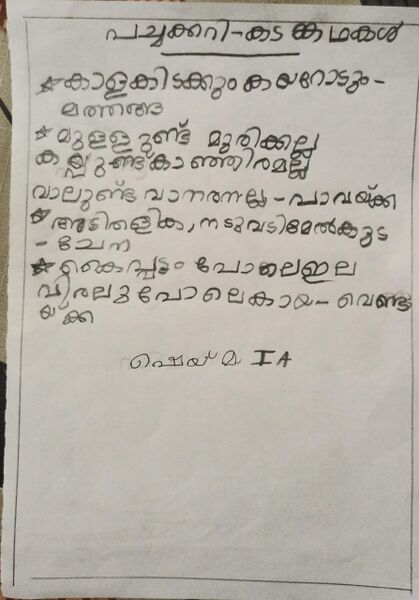 പച്ചക്കറി-കടങ്കഥകൾ
★ കാളകിടക്കും കയറോടും -
മത്തങ്ങ
★ മുള്ളുണ്ട് മുരിക്കല്ല
കയ്പ്പുണ്ട് കാഞ്ഞിരമല്ല
വാലുണ്ട് വാനരനല്ല - പാവയ്ക്ക
★ അടിതെളിക, നടുവടിമേൽകുട
- ചേന
★ കൈപ്പടം പോലെഇല
വിരലുപോലെകായ- വെണ്ട
യ്ക്ക
ഷെയ്മ I A